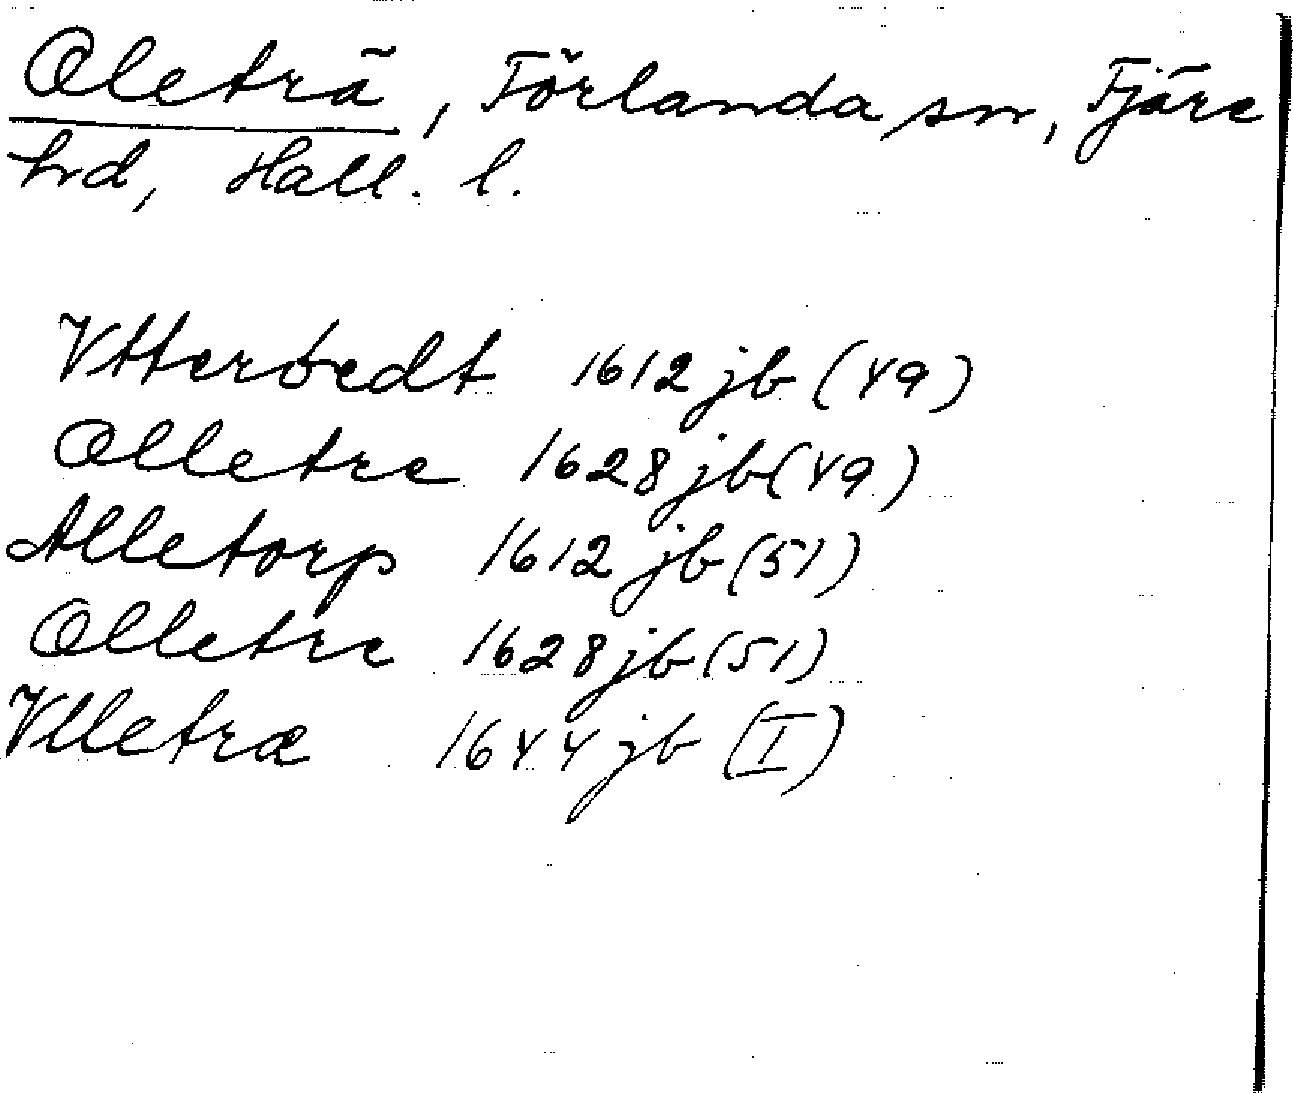 Oleträ, Förlanda sn, Fjäre
hrd, Hall. l.
Vtterödt 1612 jb (49)
Olletre 1628 jb (49)
Alletorp 1612 jb (51)
Olletre 1628 jb (51)
Vlletræ 1644 jb (I)